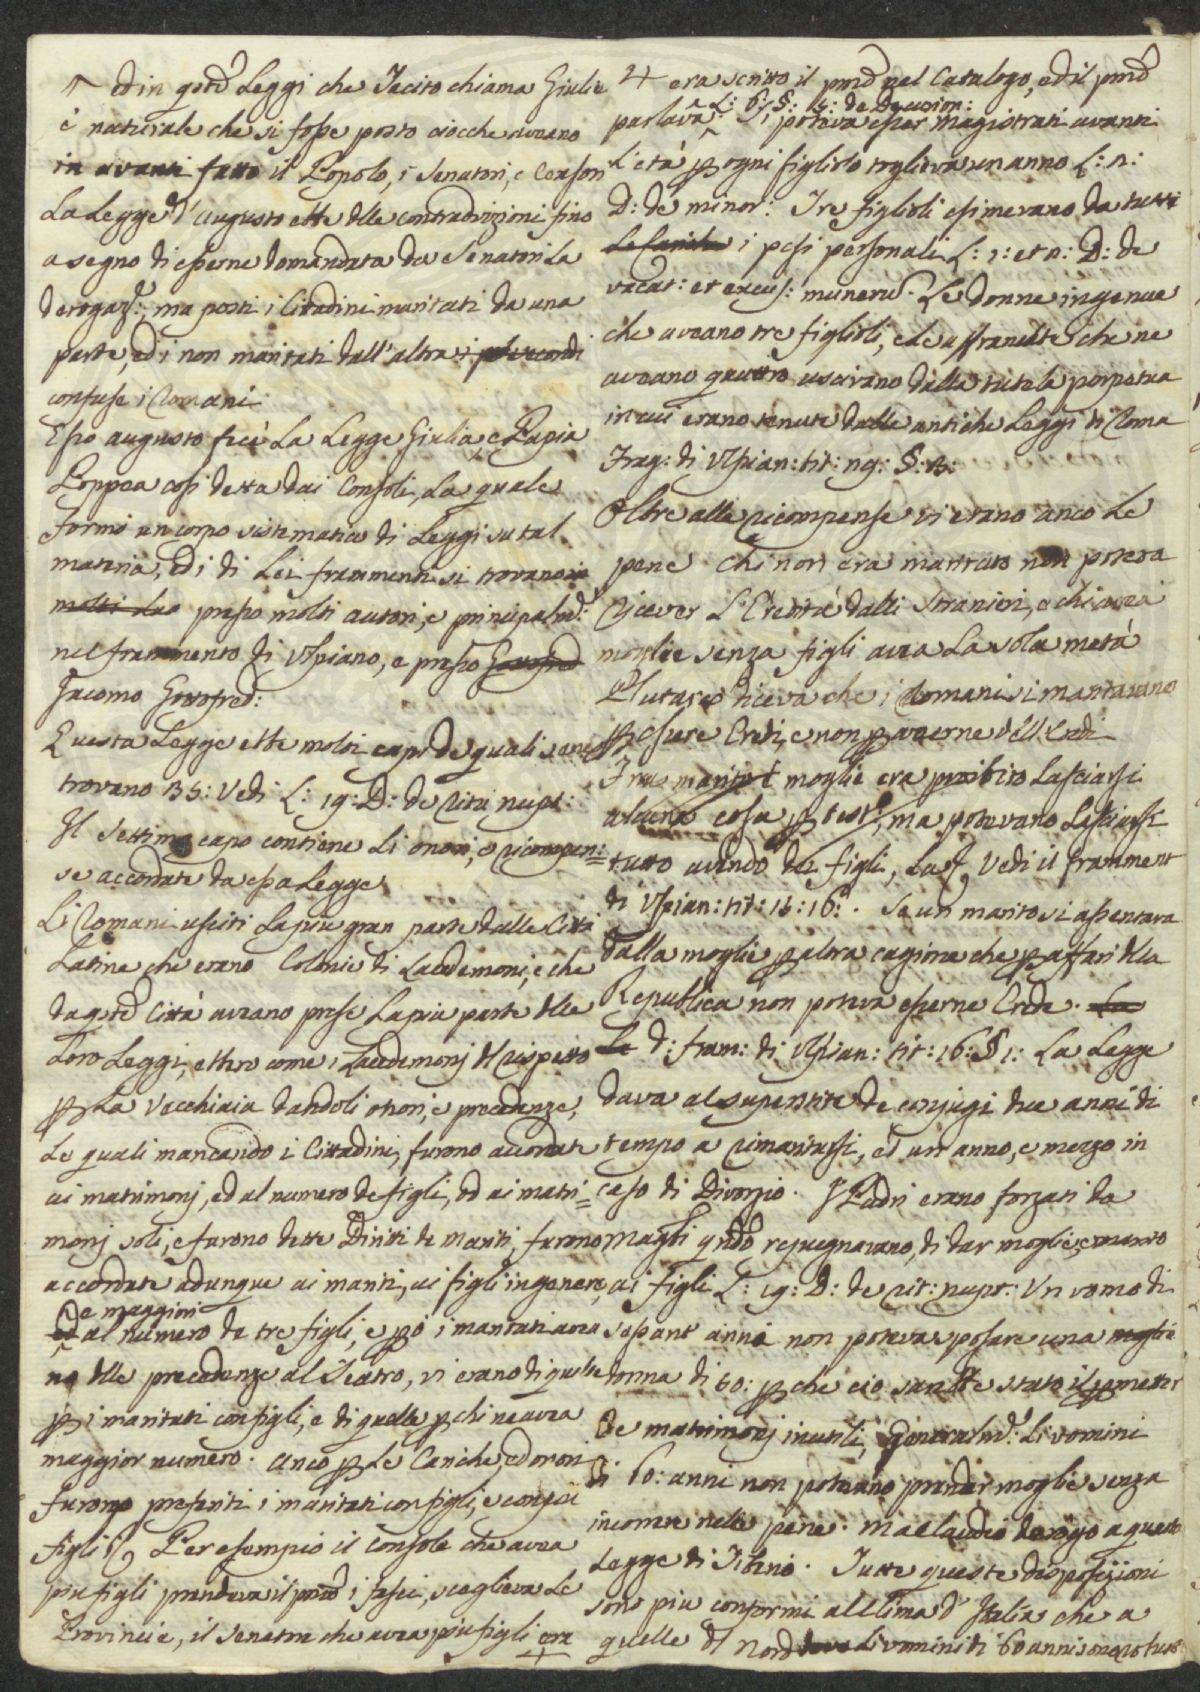 Ed in qste Leggi che Tacito chiama Giulie
è naturale che si fosse posto ciocche aveano
in avanti fatto il Popolo, i Senatori, e Censori
La Legge d'Augusto ebbe dlle contradizioni fino
a segno di esserne domandata da Senatori La
derogaz:, ma posti i Cittadini maritati da una
parte, ed i non maritati dall'altra
confuse i Romani
Esso Augusto fece La Legge Giulia, e Papia
Poppea cosi detta dai Consoli, La quale
formò un corpo sistematico di Leggi su tal
materia, ed i di Lei frammenti si trovano in
molti presso molti autori, e principalmte:
nel frammento di Ulpiano, e presso Gottofred
Jacomo Gottofred:
Questa Legge ebbe molti capi de quali sene
trovano 35: Vedi L: 19: D: de Ritu nupt:
Il settimo capo contiene Li onori, e ricompen=
se accordate da essa Legge
Li Romani usciti La piu gran parte dalle Città
Latine che erano Colonie di Lacedemoni, e che
da qste Città aveano prese La piu parte dlle
Loro Leggi, ebbero come i Lacedemonj dl rispetto
p La Vecchiaia dandoli onori, e precedenze,
Le quali mancando i Cittadini, furono accordate
ai matrimonj, ed al numero de figli, ed ai matri=
monj soli, e furono dette Diritti de Mariti, furono
accordate adunque ai mariti, ai figli in genere,
e maggiori
ed al numero de tre figli, e pò i maritati avea
no dlle precedenze al Teatro, vi erano di quelle
p i maritati con figli, e di quelle p chi ne avea
maggior numero. Anco p Le Cariche, ed onori
furono preferiti i maritati con figli, e con piu
figli Per esempio il Console che avea
piu figli prendeva il primo i fasci, sceglieva Le
Provincie, il Senatore che avea piu figli era
era scritto il primo nel Catalogo, ed il primo
parlava L: 6: §: 5: de Decurion:
Si poteva esser Magistrati avanti
L'età p ogni figliolo toglieva un anno L: 2:
D: de minor: Tre figlioli esimevano da tutti
i pesi personali L: 1: et 2: D: de
vacat: et excus: munerū. Le donne ingenue
che aveano tre figlioli, e Le affrancate che ne
aveano quattro uscivano dalla tutela perpetua
in cui erano tenute dalle antiche Leggi di Roma
Frag: di Ulpian: tit: 29: §: 3:
Oltre alle ricompense vi erano anco Le
pene Chi non era maritato non poteva
ricever L'Eredità dalli stranieri, e chi avea
moglie senza figli avea La sola metà
Plutarco diceva che i Romani si maritavano
p essere Eredi, e non p averne dell'Eredi
Fra marito e moglie era proibito Lasciarsi
alcuna cosa p test:, ma potevano Lasciarsi
tutto avendo de figli, Vedi il framment
di Ulpian: tit: 15: 16:. Se un marito si assentava
dalla moglie p altra cagione che p affari dlla
Republica non poteva esserne Erede. La
Le d: fram: di Ulpian: tit: 16: § 1: La Legge
dava al superstite de conjugi due anni di
tempo a rimaritarsi, ed un anno, e mezzo in
caso di Divorzio. I Padri erano forzati da
Magti qndo repugnavano, di dar moglie, e marito
ai figli L: 19: D: de rit: nupt: Un uomo di
sessant'anni non poteva sposare una moglie
donna di 50: p che cio sarebbe stato il permetter
de matrimonj inutili, Generalmte: Li uomini
di 60: anni non poteano prender moglie senza
incorrere nelle pene. Ma Claudio derogò a questa
Legge di Tiberio. Tutte queste disposizioni
sono piu conformi al Clima d'Italia che a
quelle dl Nord dove Li uomini di 60 anni sono robusti